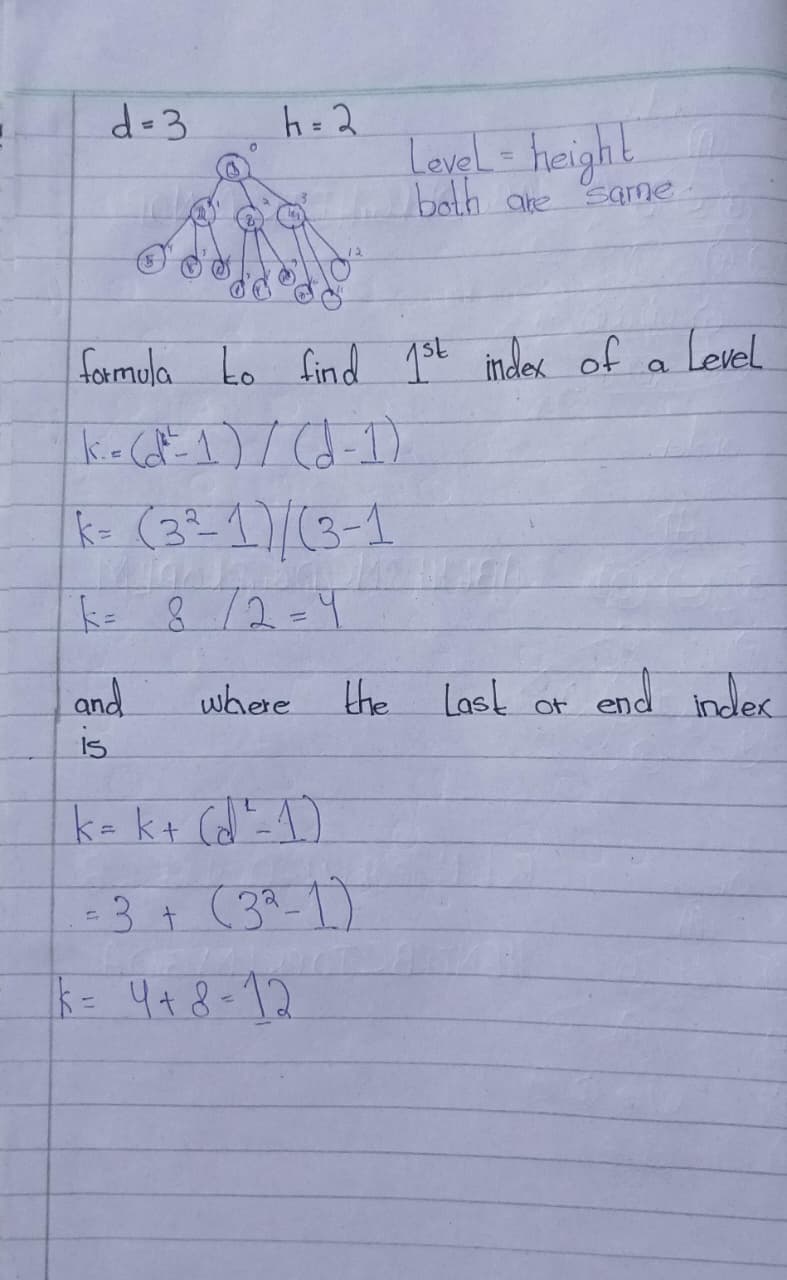 d = 3 h = 2
Level = height
both are same
0
1 2 3
12
formula to find 1st index of a Level
k = (d^L - 1) / (d - 1)
k = (3² - 1) / (3 - 1
k = 8 / 2 = 4
and where the Last or end index
is
k = k + (d^L - 1)
= 3 + (3² - 1)
k = 4 + 8 = 12